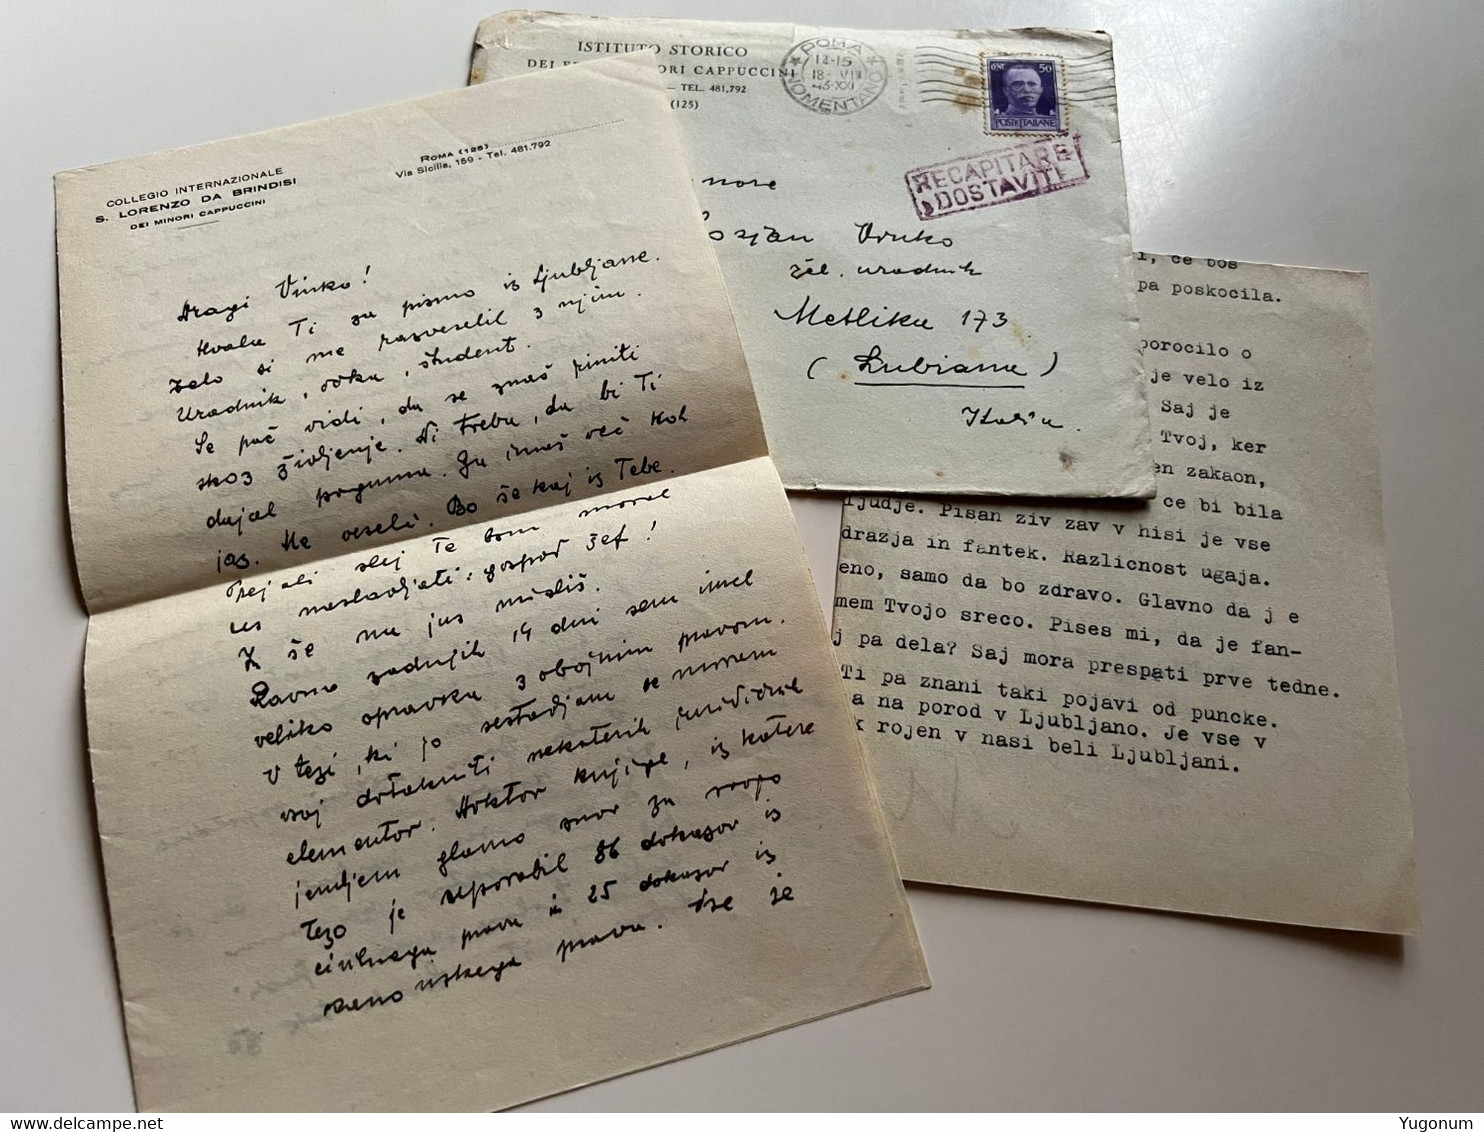 COLLEGIO INTERNAZIONALE
S. LORENZO DA BRINDISI
DEI MINORI CAPPUCCINI
ROMA (125)
Via Sicilia, 159 - Tel. 481.792
Dragi Vinko!
Hvala Ti za pismo iz Ljubljane.
Zelo si me razveselil z njim.
Uradnik, očka, študent.
Se pač vidi, da se znaš riniti
skoz življenje. Ni treba, da bi Ti
dajal poguma. Ga imaš več kot
jaz. Me veseli. Bo še kaj iz Tebe.
Prej ali slej Te bom moral
nasloavljati: gospod šef!
še na jus misliš.
Ravno zadnjih 14 dni sem imel
veliko opravka z obojnim pravom.
V tezi, ki jo sestavljam se moram
dotakniti nekaterih juridičnih
elementov. Doktor knjige, iz katere
jemljem glavno snov za svojo
tezo je uporabil 86 dokazov iz
civilnega prava in 25 dokazov iz
kanonskega prava. Vse je
ISTITUTO STORICO
DEI MINORI CAPPUCCINI
TEL. 481,792
(125)
ROMA
NOMENTANO
14-15
18-VIII
43-XXI
50
POSTE ITALIANE
RECAPITARE
DOSTAVITE
Vinko
žel. uradnik
Metlika 173
(Lubiana)
Italia.
i, ce bos
pa poskocila.
porocilo o
je velo iz
Saj je
Tvoj, ker
en zakaon,
ce bi bila
ljudje. Pisan ziv zav v hisi je vse
drazja in fantek. Razlicnost ugaja.
eno, samo da bo zdravo. Glavno da j e
mem Tvojo sreco. Pises mi, da je fan-
j pa dela? Saj mora prespati prve tedne.
Ti pa znani taki pojavi od puncke.
a na porod v Ljubljano. Je vse v
k rojen v nasi beli Ljubljani.
Yugonum